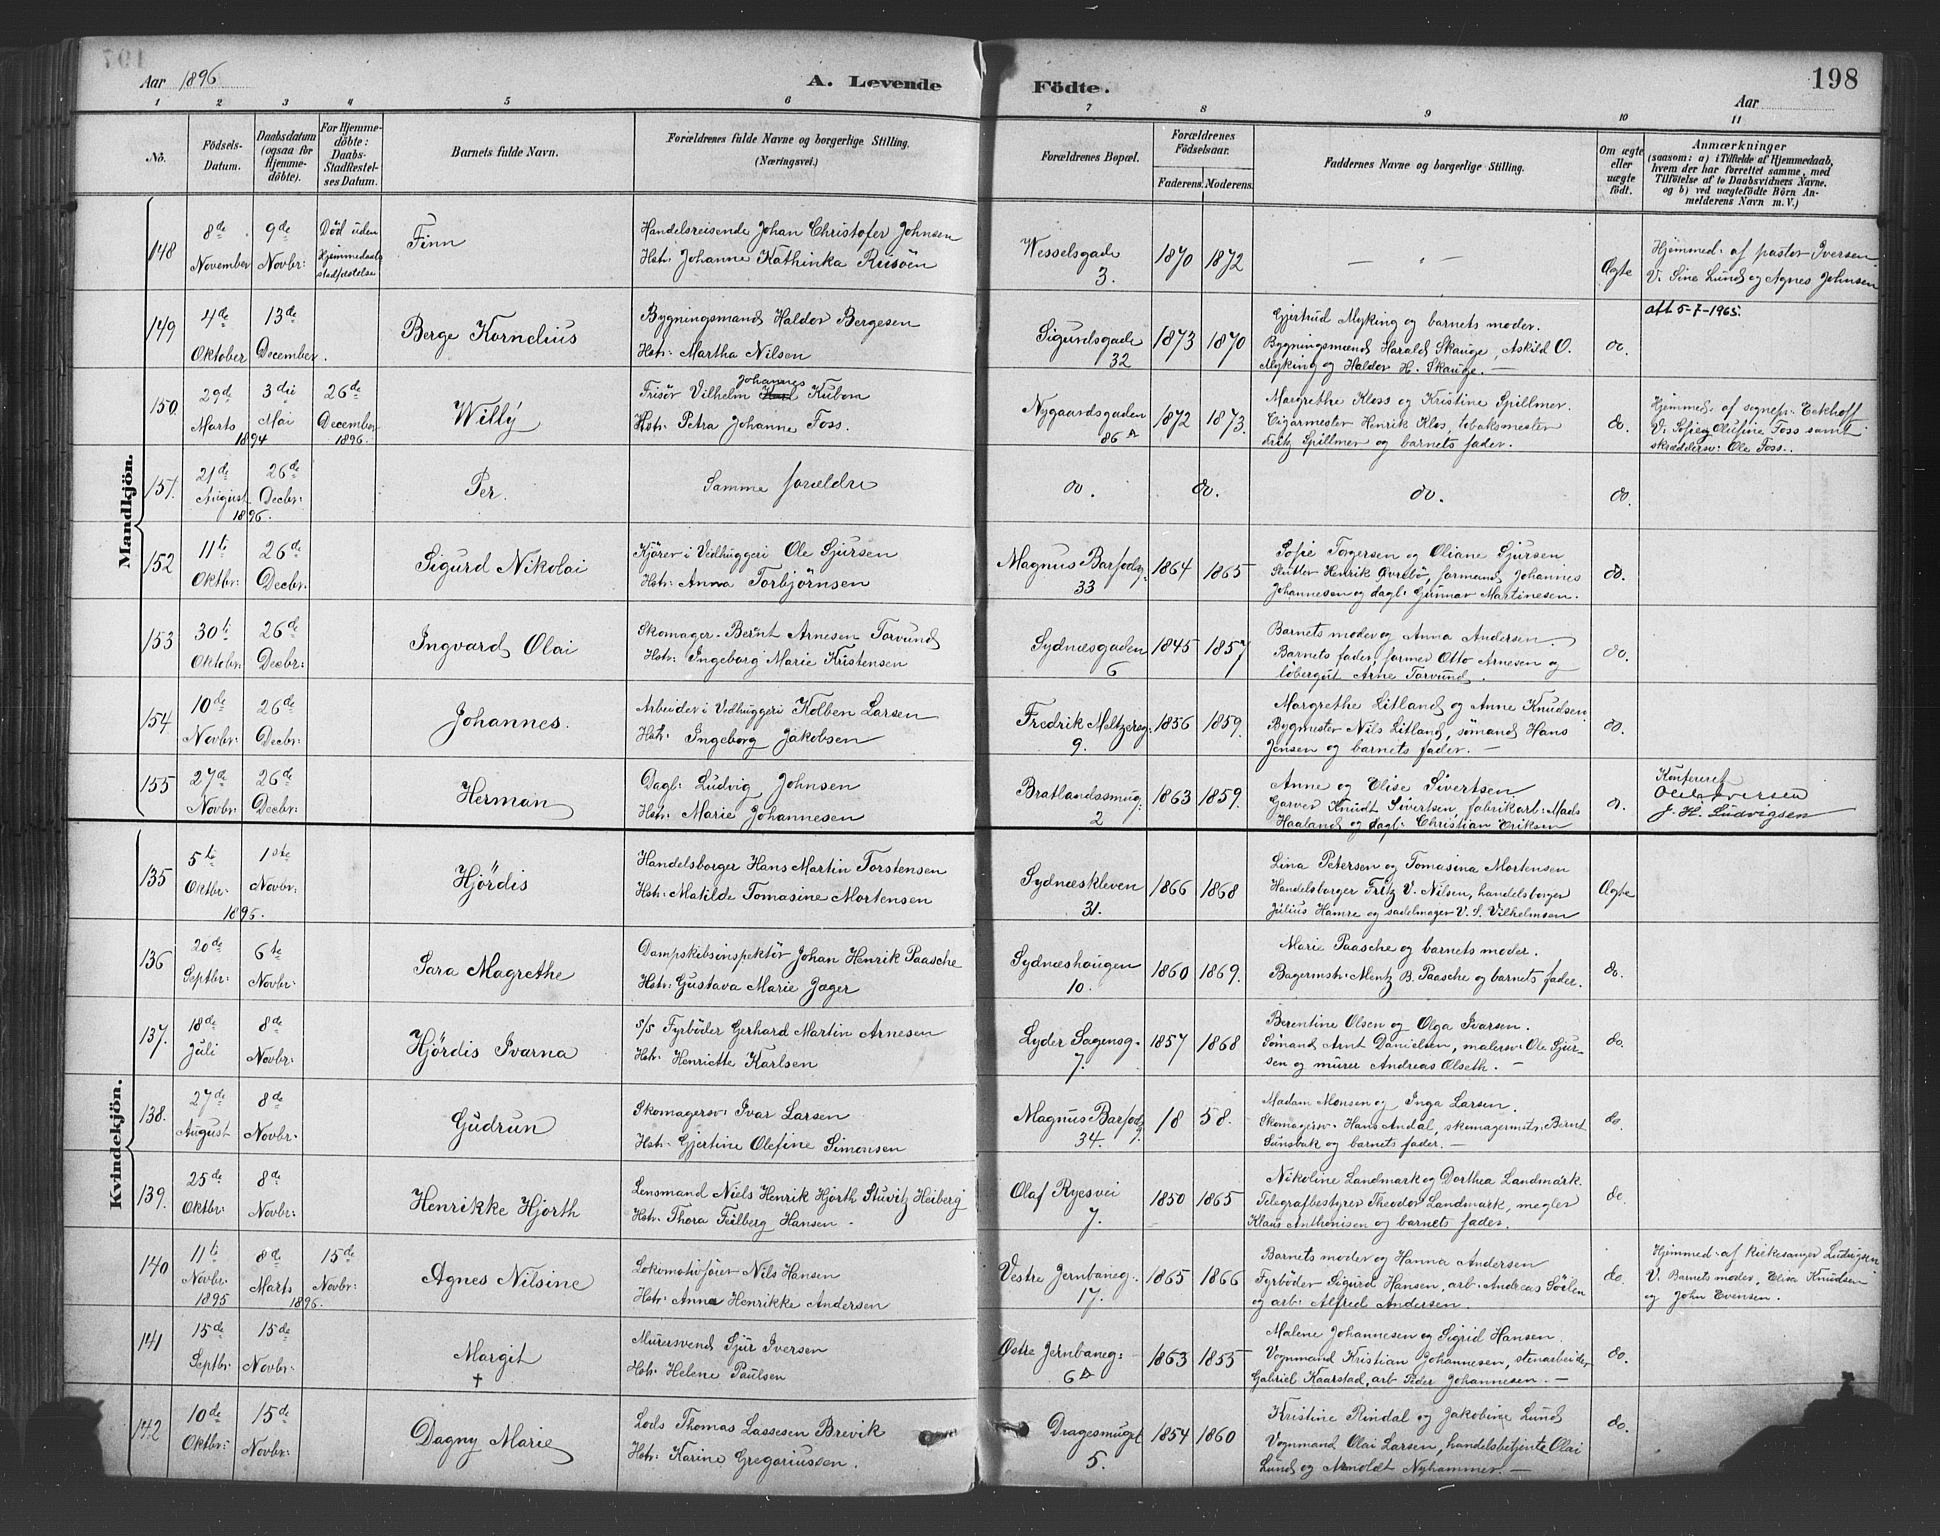 Aar 1896
A. Levende
Födte.
198
Aar
1 2 3 4 5 6 7 8 9 10 11
No.
Födsels-Datum.
Daabsdatum (ogsaa for Hjemmedöbte).
For Hjemmedöbte: Daabs-Stadfæstelses Datum.
Barnets fulde Navn.
Forældrenes fulde Navne og borgerlige Stilling. (Næringsvei.)
Forældrenes Bopæl.
Forældrenes Födselsaar.
Faderens. Moderens.
Faddernes Navne og borgerlige Stilling.
Om ægte eller uægte födt.
Anmærkninger
(saasom: a) i Tilfælde af Hjemmedaab, hvem der har forrettet samme, med Tilföielse af to Daabsvidners Navne. og b) ved uægtefödte Börn Anmelderens Navn m. V.)
Mandkjön.
148 8de November 9de Novbr: Död uden Hjemmedaabs stadfæstelse Finn
Handelsreisende Johan Christofer Johnsen
Hstr: Johanne Kathinka Risöen
Wesselsgade 3. 1870 1872 — " — Ægte
Hjemmed. af pastor Iversen.
V. Sine Lund og Agnes Johnsen
149 4de Oktober 13de December. Berge Kornelius
Bygningsmand Haldor Bergesen
Hstr: Martha Nilsen
Sigurdsgade 32 1873 1870
Gjertrud Myking og barnets moder.
Bygningsmænd Harald Skauge, Askild O.
Myking og Haldor H. Skauge. —
do.
att 5-7-1965.
150. 29de Marts 1894 3die Mai 26de December 1896. Willy
Frisör Vilhelm Johannes Kubon
Hstr: Petra Johanne Foss.
Nygaardsgaden 86 A 1872 1873.
Margrethe Kloss og Kristine Spillmer.
Cigarmester Henrik Klos, tobaksmester
Fritz Spillmer og barnets fader.
do.
Hjemmed. af sognepr. Eckhoff
V: Sofie og Olufine Foss samt
skræddersv: Ole Foss..
151. 21de August 1896. 26de Decbr: Per.
Samme forældre
do. do. do. do.
152 11te Oktbr: 26de Decbr: Sigurd Nikolai
Kjörer i Vedhuggeri Ole Sjursen
Hstr: Anna Torbjörnsen
Magnus Barfodsg: 33 1864 1865
Sofie Torgersen og Oliane Sjursen
Slutter Henrik Övrebö, formand Johannes
Johannesen og dagl: Gunnar Martinesen.
do.
153 30te Oktobr: 26de Decbr: Ingvard Olai
Skomager. Bernt Arnesen Torvund
Hstr: Ingeborg Marie Kristensen
Sydnæsgaden 6 1845 1857
Barnets moder og Anna Andersen.
Barnets fader, former Otto Arnesen og
löbergut Arne Torvund.
do.
154. 10de Novbr: 26de Decbr: Johannes.
Arbeider i Vedhuggeri Kolben Larsen
Hstr: Ingeborg Jakobsen
Fredrik Meltzersg: 9. 1856 1859.
Margrethe Litland og Anne Knudsen.
Bygmester Nils Litland, sömand Hans
Jensen og barnets fader. —
do.
155 27de Novbr: 26de Decbr: Herman
Dagl: Ludvig Johnsen
Hstr: Marie Johannesen
Bratlandssmug: 2 1863 1859.
Anne og Elise Sivertsen
Garver Knudt Sivertsen, fabrikarb: Mads
Haaland og dagl: Christian Eriksen
do.
Konfereret
J. H. Ludvigsen
Kvindekjön.
135 5te Oktbr: 1895. 1ste Novbr: Hjördis
Handelsborger Hans Martin Torstensen
Hstr: Matilde Tomasine Mortensen
Sydnæskleven 31. 1866 1868
Lina Petersen og Tomasina Mortensen
Handelsborger Fritz V. Nilsen, handelsborger
Julius Hamre og sadelmager V. S. Vilhelmsen
Ægte
136 20de Septbr: 6te Novbr: Sara Magrethe
Dampskibsinspektör Johan Henrik Paasche
Hstr: Gustava Marie Jæger
Sydnæshaugen 10. 1860 1869.
Marie Paasche og barnets moder.
Bagermstr: Mentz B. Paasche og barnets fader.
do.
137. 18de Juli 8de Novbr: Hjördis Ivarna
S/S Fyrböder Gerhard Martin Arnesen
Hstr: Henriette Karlsen
Lyder Sagensg. 7. 1857 1868
Berentine Olsen og Olga Ivarsen.
Sömand Arnt Danielsen, malersv: Ole Sjur-
sen og murer Andreas Olseth. —
do.
138. 27de August 8de Novbr: Gudrun
Skomagersv: Ivar Larsen
Hstr: Gjertine Olefine Simonsen
Magnus Barfodsg. 34. 18 58.
Madam Monsen og Inga Larsen.
Skomagersv. Hans Andal, skomagermstr: Bernt
Sunsbak og barnets fader. —
do.
139. 25de Oktbr: 8de Novbr: Henrikke Hjorth
Lensmand Niels Henrik Hjorth Stuvitz Heiberg
Hstr: Thora Feilberg Hansen.
Olaf Ryesvei 7. 1850 1865
Nikoline Landmark og Dorthea Landmark.
Telegrafbestyrer Theodor Landmark, megler
Klaus Anthonisen og barnets fader.
do
140 11te Novbr. 1895 8de Marts 1896. 15de Novbr: Agnes Nilsine
Lokomotivförer Nils Hansen
Hstr: Anna Henrikke Andersen
Vestre Jernbaneg. 17. 1865 1866
Barnets moder og Hanna Andersen
Fyrböder Sigurd Hansen, arb: Andreas Sörlen
og arb: Alfred Andersen.
do.
Hjemmed. af kirkesanger Ludvigsen
V. Barnets moder, Elisa Knudsen
og John Evensen.
141 15de Septbr. 15de Novbr: Margit †
Murersvend Sjur Iversen
Hstr: Helene Paulsen
Östre Jernbaneg: 6 A 1863 1855
Malene Johannesen og Sigrid Hansen.
Vognmand Kristian Johannesen, stenarbeider
Gabriel Kaarstad, arb Peder Johannesen. —
do.
142 10de Oktbr: 15de Novbr: Dagny Marie
Lods Thomas Lassesen Brevik
Hstr: Karine Gregoriussen.
Dragesmuget 5. 1854 1860
Kristine Rindal og Jakobine Lund
Vognmand Olai Larsen, handelsbetjente Olai
Lund og Arnoldt Nyhammer. —
do.